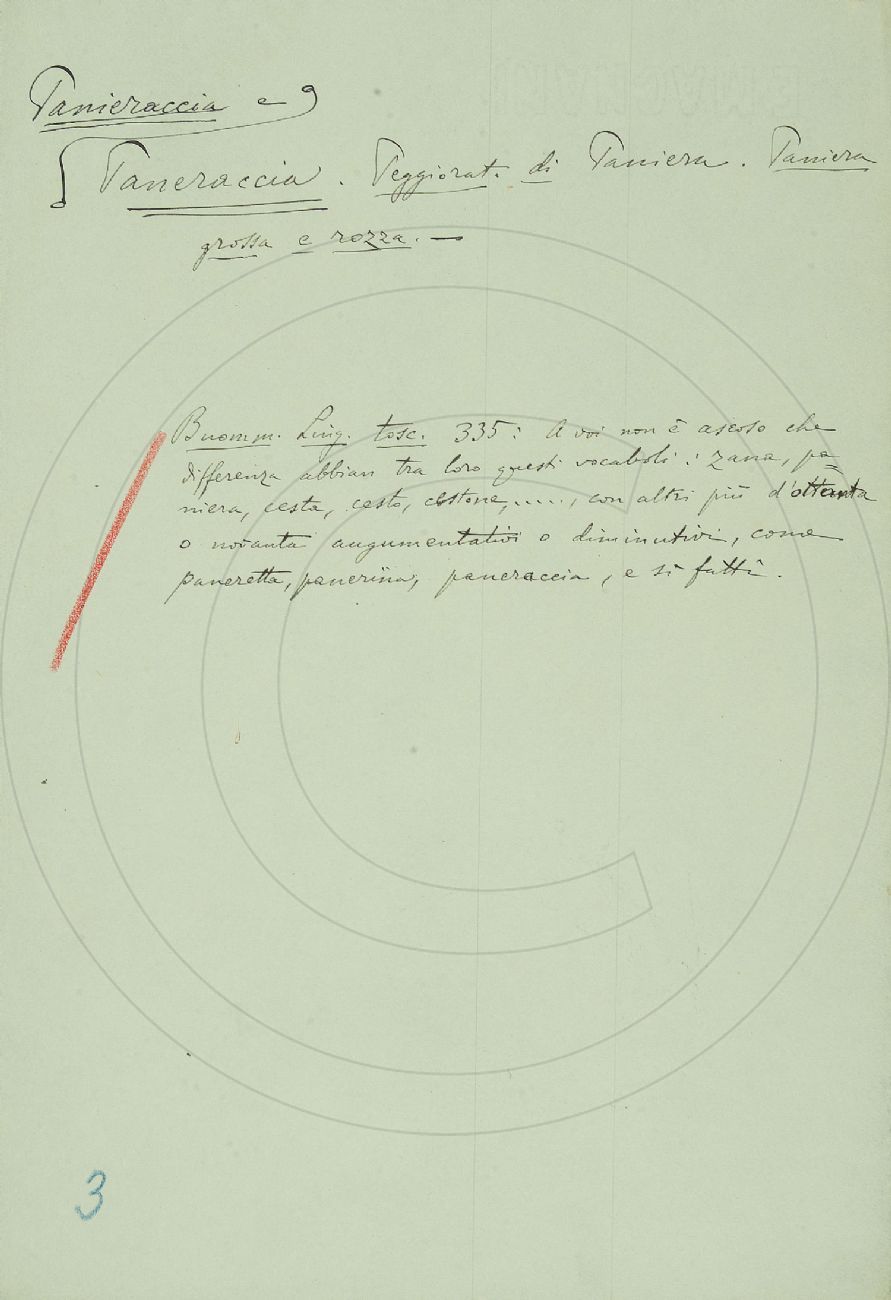 Panieraccia e
Paneraccia. Peggiorat. di Paniera. Paniera
grossa e rozza. —
Buomm. Ling. tosc. 335: A voi non è ascoso che
differenza abbian tra loro questi vocaboli: zana, pa=
niera, cesta, cesto, cestone,....., con altri più d'ottanta
o novanta augumentativi o diminutivi, come
paneretta, panerina, paneraccia, e sì fatti.
3